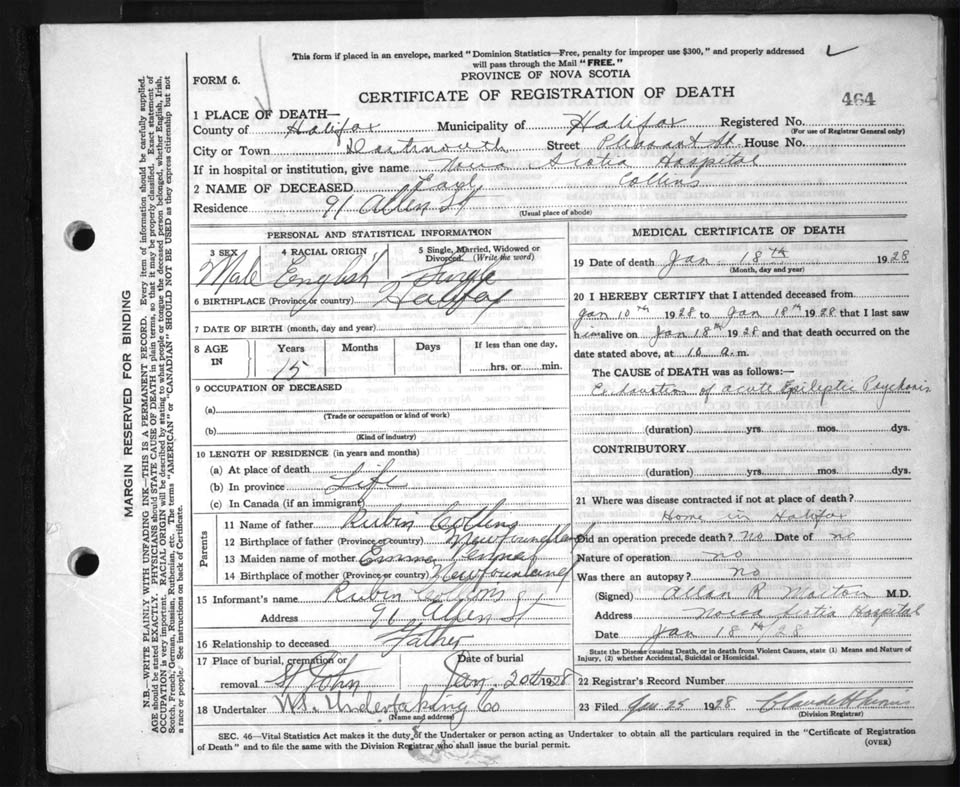 This form if placed in an envelope, marked "Dominion Statistics—Free, penalty for improper use $300," and properly addressed
will pass through the Mail "FREE."
FORM 6.
PROVINCE OF NOVA SCOTIA
CERTIFICATE OF REGISTRATION OF DEATH
464
1 PLACE OF DEATH—
County of Halifax Municipality of Halifax Registered No.
(For use of Registrar General only)
City or Town Dartmouth Street Pleasant St. House No.
If in hospital or institution, give name Nova Scotia Hospital
2 NAME OF DECEASED Earl Collins
Residence 91 Allen St
(Usual place of abode)
PERSONAL AND STATISTICAL INFORMATION
3 SEX 4 RACIAL ORIGIN 5 Single, Married, Widowed or
Divorced (Write the word)
Male English Single
6 BIRTHPLACE (Province or country) Halifax
7 DATE OF BIRTH (month, day and year)
8 AGE IN Years Months Days If less than one day,
15 hrs. or min.
9 OCCUPATION OF DECEASED
(a)
(Trade or occupation or kind of work)
(b)
(Kind of industry)
10 LENGTH OF RESIDENCE (in years and months)
(a) At place of death
(b) In province Life
(c) In Canada (if an immigrant)
Parents
11 Name of father Rubin Collins
12 Birthplace of father Newfoundland
13 Maiden name of mother Emma
14 Birthplace of mother (Province or country) Newfoundland
15 Informant's name Rubin Collins
Address 91 Allen St
16 Relationship to deceased Father
17 Place of burial, cremation or Date of burial
removal St John Jan 20th 1928
18 Undertaker Undertaking Co
(Name and address)
MEDICAL CERTIFICATE OF DEATH
19 Date of death Jan 18th 1928
(Month, day and year)
20 I HEREBY CERTIFY that I attended deceased from
Jan 10th 1928 to Jan 18th 1928 that I last saw
him alive on Jan 18th 1928 and that death occurred on
date stated above, at 10 a.m.
The CAUSE of DEATH was as follows:—
Exhaustion of acute Epileptic Psychosis
(duration) yrs. mos. dys.
CONTRIBUTORY
(duration) yrs. mos. dys.
21 Where was disease contracted if not at place of death?
Home in Halifax
Did an operation precede death? no Date of no
Nature of operation no
Was there an autopsy? no
(Signed) Allan R Morton M.D.
Address Nova Scotia Hospital
Date Jan 18th/28
State the Disease causing Death, or in death from Violent Causes, state (1) Means and Nature of
Injury, (2) whether Accidental, Suicidal or Homicidal.
22 Registrar's Record Number
23 Filed Jan 25 1928
(Division Registrar)
SEC. 46—Vital Statistics Act makes it the duty of the Undertaker or person acting as Undertaker to obtain all the particulars required in the "Certificate of Registration
of Death" and to file the same with the Division Registrar who shall issue the burial permit.
(OVER)
MARGIN RESERVED FOR BINDING
N.B.—WRITE PLAINLY WITH UNFADING INK—THIS IS A PERMANENT RECORD. Every item of information should be carefully supplied.
AGE should be stated EXACTLY. PHYSICIANS should STATE CAUSE OF DEATH in plain terms, so that it may be properly classified. Exact statement of
OCCUPATION is very important. RACIAL ORIGIN will be described by stating to what people or tongue the deceased person belonged, whether English, Irish,
Scotch, French, German, Russian, Ruthenian, etc. The terms "AMERICAN" or "CANADIAN" SHOULD NOT BE USED as they express citizenship but not
a race or people. See instructions on back of Certificate.